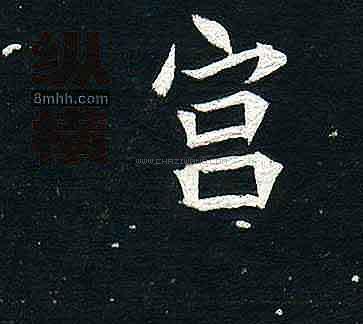 宫
纵横
8mhh.com
WWW.CHAZIWANG.COM